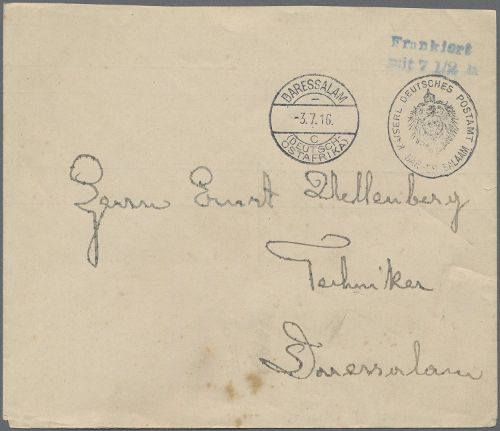 Frankiert
mit 7 1/2 h
DARESSALAM
-3.7.16.
C
(DEUTSCH-
OSTAFRIKA)
KAISERL. DEUTSCHES POSTAMT
DARESSALAAM
Herrn Ernst Schellenberg
Techniker
Daressalam